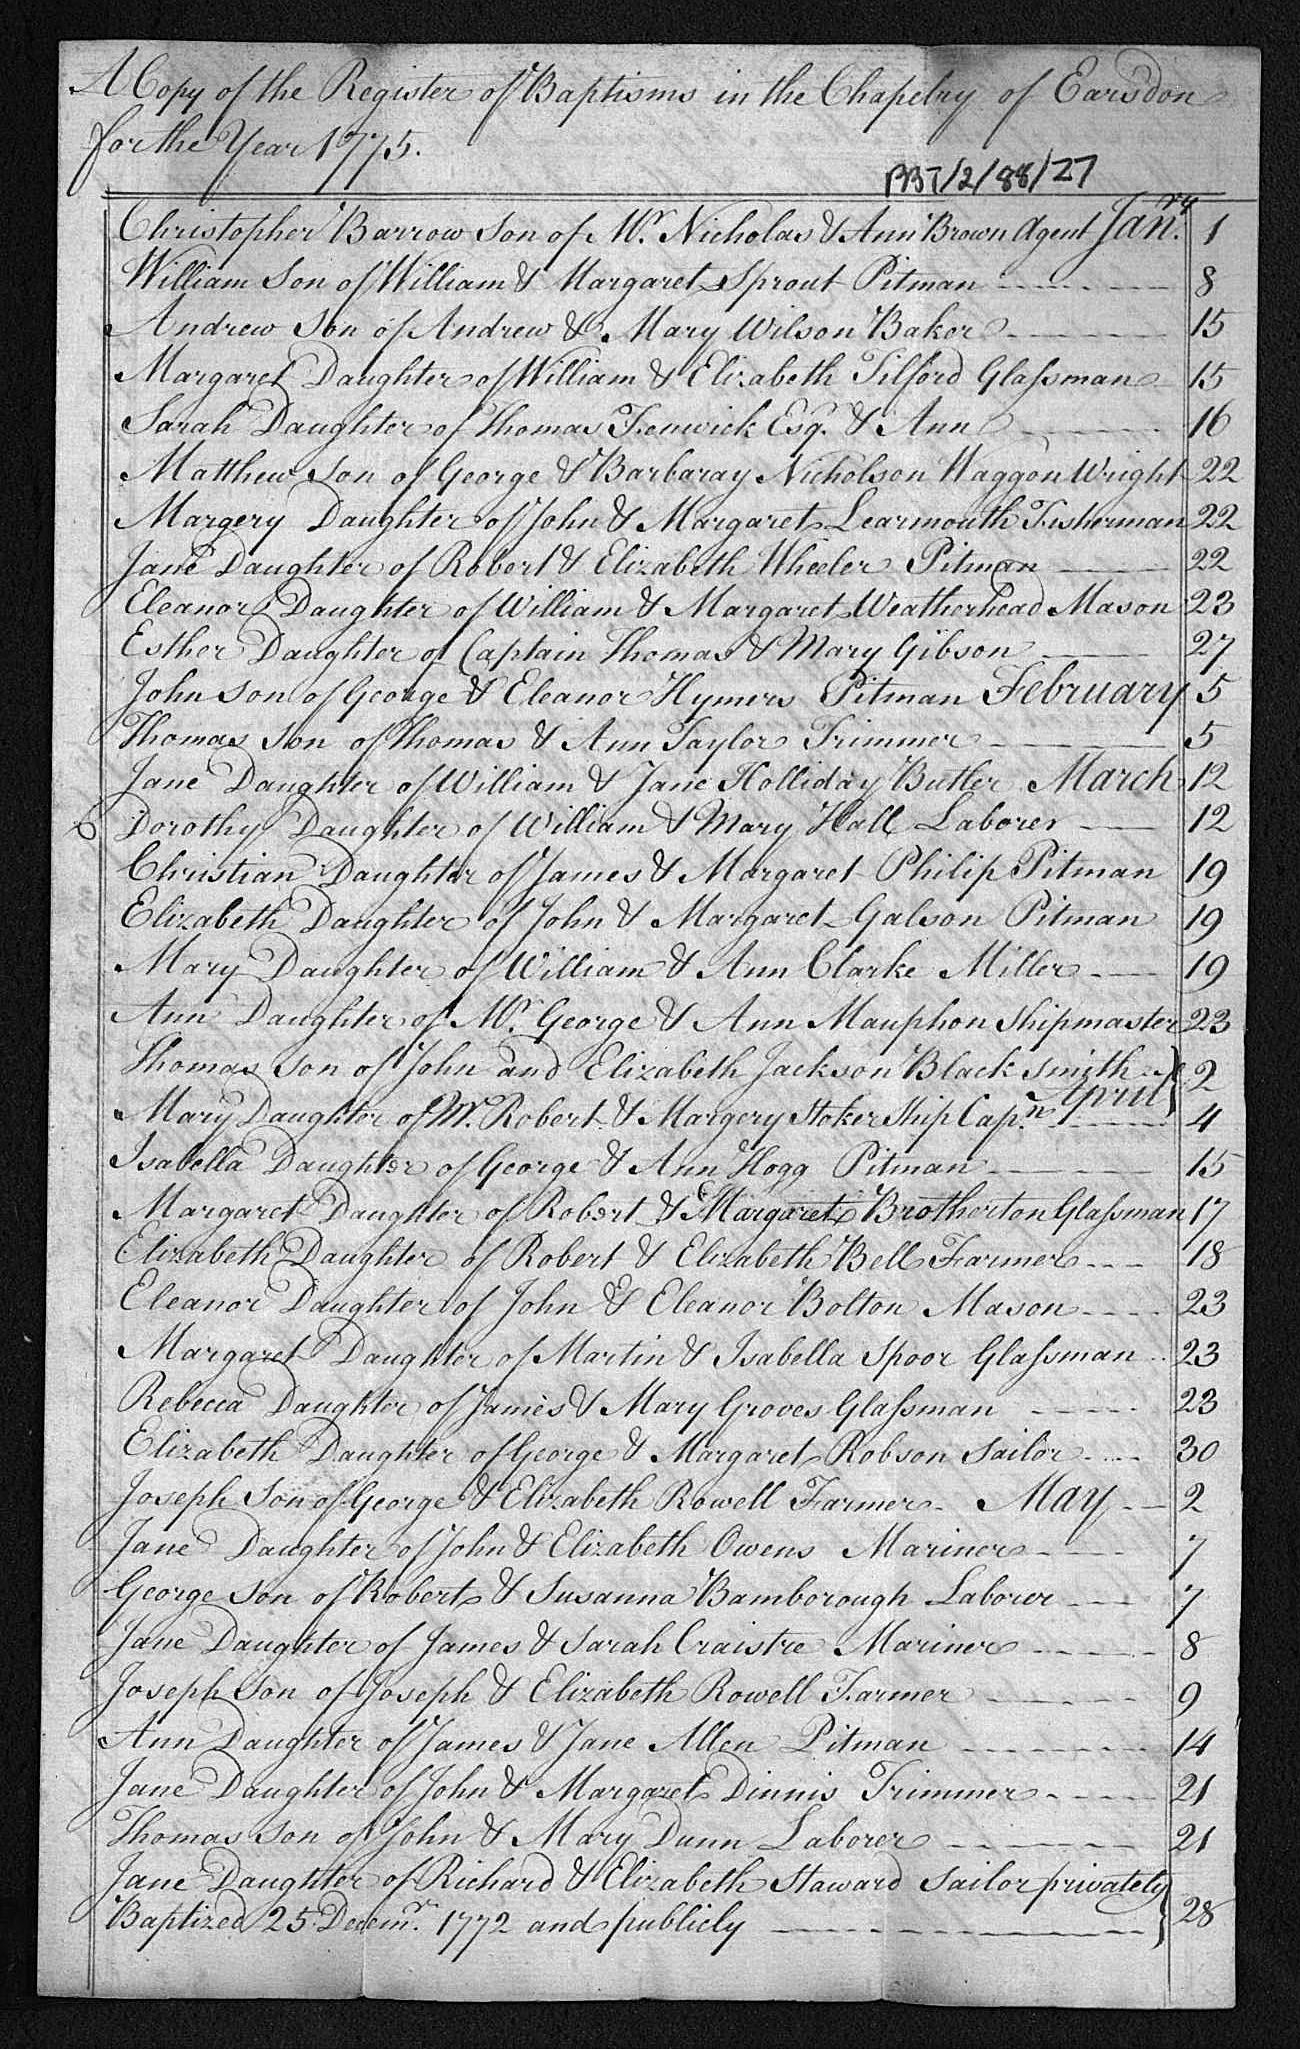 A Copy of the Register of Baptisms in the Chapelry of Earsdon
for the Year 1775.
BBT/2/88/27
Christopher Barrow Son of Mr. Nicholas & Ann Brown Agent Janry. 1
William Son of William & Margaret Sprout Pitman 8
Andrew Son of Andrew & Mary Wilson Baker 15
Margaret Daughter of William & Elizabeth Tilford Glassman 15
Sarah Daughter of Thomas Fenwick Esq. & Ann 16
Matthew Son of George & Barbaray Nicholson Waggon Wright 22
Margery Daughter of John & Margaret Learmouth Fisherman 22
Jane Daughter of Robert & Elizabeth Wheeler Pitman 22
Eleanor Daughter of William & Margaret Weatherhead Mason 23
Esther Daughter of Captain Thomas & Mary Gibson 27
John Son of George & Eleanor Hymers Pitman February 5
Thomas Son of Thomas & Ann Taylor Trimmer 5
Jane Daughter of William & Jane Holliday Butler March 12
Dorothy Daughter of William & Mary Hall Laborer 12
Christian Daughter of James & Margaret Philip Pitman 19
Elizabeth Daughter of John & Margaret Galson Pitman 19
Mary Daughter of William & Ann Clarke Miller 19
Ann Daughter of Mr. George & Ann Mauphon Shipmaster 23
Thomas Son of John and Elizabeth Jackson Black Smith April 2
Mary Daughter of Mr. Robert & Margery Stoker Ship Capn. 4
Isabella Daughter of George & Ann Hogg Pitman 15
Margaret Daughter of Robert & Margaret Brotherton Glassman 17
Elizabeth Daughter of Robert & Elizabeth Bell Farmer 18
Eleanor Daughter of John & Eleanor Bolton Mason 23
Margaret Daughter of Martin & Isabella Spoor Glassman 23
Rebecca Daughter of James & Mary Groves Glassman 23
Elizabeth Daughter of George & Margaret Robson Sailor 30
Joseph Son of George & Elizabeth Rowell Farmer May 2
Jane Daughter of John & Elizabeth Owens Mariner 7
George Son of Robert & Susanna Bamborough Laborer 7
Jane Daughter of James & Sarah Craistre Mariner 8
Joseph Son of Joseph & Elizabeth Rowell Farmer 9
Ann Daughter of James & Jane Allen Pitman 14
Jane Daughter of John & Margaret Dinnis Trimmer 21
Thomas Son of John & Mary Dunn Laborer 21
Jane Daughter of Richard & Elizabeth Staward Sailor privately
Baptized 25 Decemr. 1772 and publicly 28